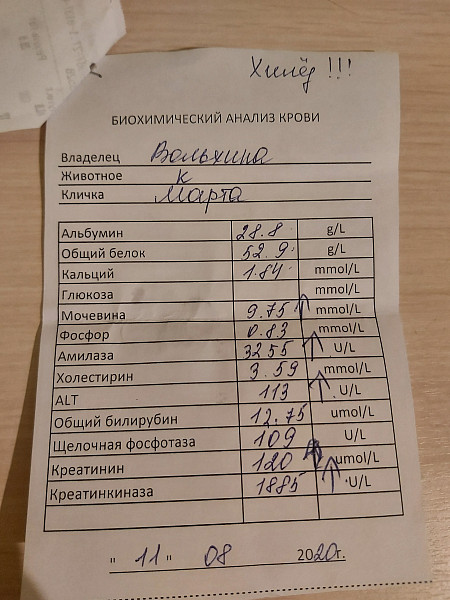 Хилёз !!!
БИОХИМИЧЕСКИЙ АНАЛИЗ КРОВИ
Владелец Вольхина
Животное к
Кличка Марта
Альбумин 28.8 g/L
Общий белок 52.9 g/L
Кальций 1.84 mmol/L
Глюкоза mmol/L
Мочевина 9.75 ↑ mmol/L
Фосфор 0.83 mmol/L
Амилаза 3255 ↑ U/L
Холестирин 3.59 mmol/L
ALT 113 ↑ U/L
Общий билирубин 12.75 umol/L
Щелочная фосфотаза 109 U/L
Креатинин 120 ↑ umol/L
Креатинкиназа 1885 ↑ U/L
" 11 " 08 2020г.